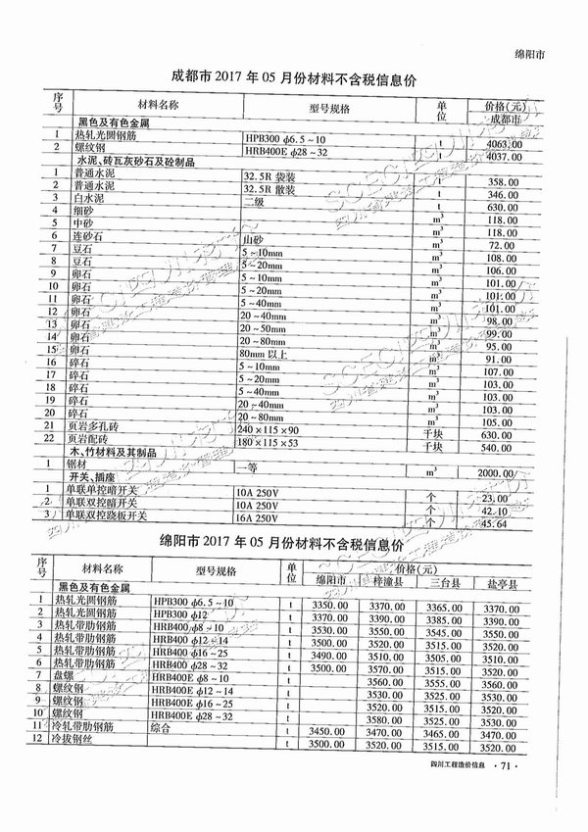 绵阳市
成都市 2017 年 05 月份材料不含税信息价
序号 材料名称 型号规格 单位 价格(元)
成都市
黑色及有色金属
1 热轧光圆钢筋 HPB300 ϕ6.5~10 t 4063.00
2 螺纹钢 HRB400E ϕ28~32 t 4037.00
水泥、砖瓦灰砂石及砼制品
1 普通水泥 32.5R 袋装 t 358.00
2 普通水泥 32.5R 散装 t 346.00
3 白水泥 二级 t 630.00
4 细砂 m³ 118.00
5 中砂 m³ 118.00
6 连砂石 山砂 m³ 72.00
7 豆石 5~10mm m³ 108.00
8 豆石 5~20mm m³ 106.00
9 卵石 5~10mm m³ 101.00
10 卵石 5~20mm m³ 101.00
11 卵石 5~40mm m³ 101.00
12 卵石 20~40mm m³ 98.00
13 卵石 20~50mm m³ 99.00
14 卵石 20~80mm m³ 95.00
15 卵石 80mm 以上 m³ 91.00
16 碎石 5~10mm m³ 107.00
17 碎石 5~20mm m³ 103.00
18 碎石 5~40mm m³ 103.00
19 碎石 20~40mm m³ 103.00
20 碎石 20~80mm m³ 105.00
21 页岩多孔砖 240×115×90 千块 630.00
22 页岩配砖 180×115×53 千块 540.00
木、竹材料及其制品
1 锯材 一等 m³ 2000.00
开关、插座
1 单联单控暗开关 10A 250V 个 23.00
2 单联双控暗开关 10A 250V 个 42.10
3 单联双控跷板开关 16A 250V 个 45.64
绵阳市 2017 年 05 月份材料不含税信息价
序号 材料名称 型号规格 单位 价格(元)
绵阳市 梓潼县 三台县 盐亭县
黑色及有色金属
1 热轧光圆钢筋 HPB300 ϕ6.5~10 t 3350.00 3370.00 3365.00 3370.00
2 热轧光圆钢筋 HPB300 ϕ12 t 3370.00 3390.00 3385.00 3390.00
3 热轧带肋钢筋 HRB400 ϕ8~10 t 3530.00 3550.00 3545.00 3550.00
4 热轧带肋钢筋 HRB400 ϕ12~14 t 3500.00 3520.00 3515.00 3520.00
5 热轧带肋钢筋 HRB400 ϕ16~25 t 3490.00 3510.00 3505.00 3510.00
6 热轧带肋钢筋 HRB400 ϕ28~32 t 3500.00 3570.00 3515.00 3520.00
7 盘螺 HRB400E ϕ8~10 t 3560.00 3555.00 3560.00
8 螺纹钢 HRB400E ϕ12~14 t 3530.00 3525.00 3530.00
9 螺纹钢 HRB400E ϕ16~25 t 3520.00 3515.00 3520.00
10 螺纹钢 HRB400E ϕ28~32 t 3580.00 3525.00 3530.00
11 冷轧带肋钢筋 综合 t 3450.00 3470.00 3465.00 3470.00
12 冷拔钢丝 t 3500.00 3520.00 3515.00 3520.00
四川工程造价信息 ·71·